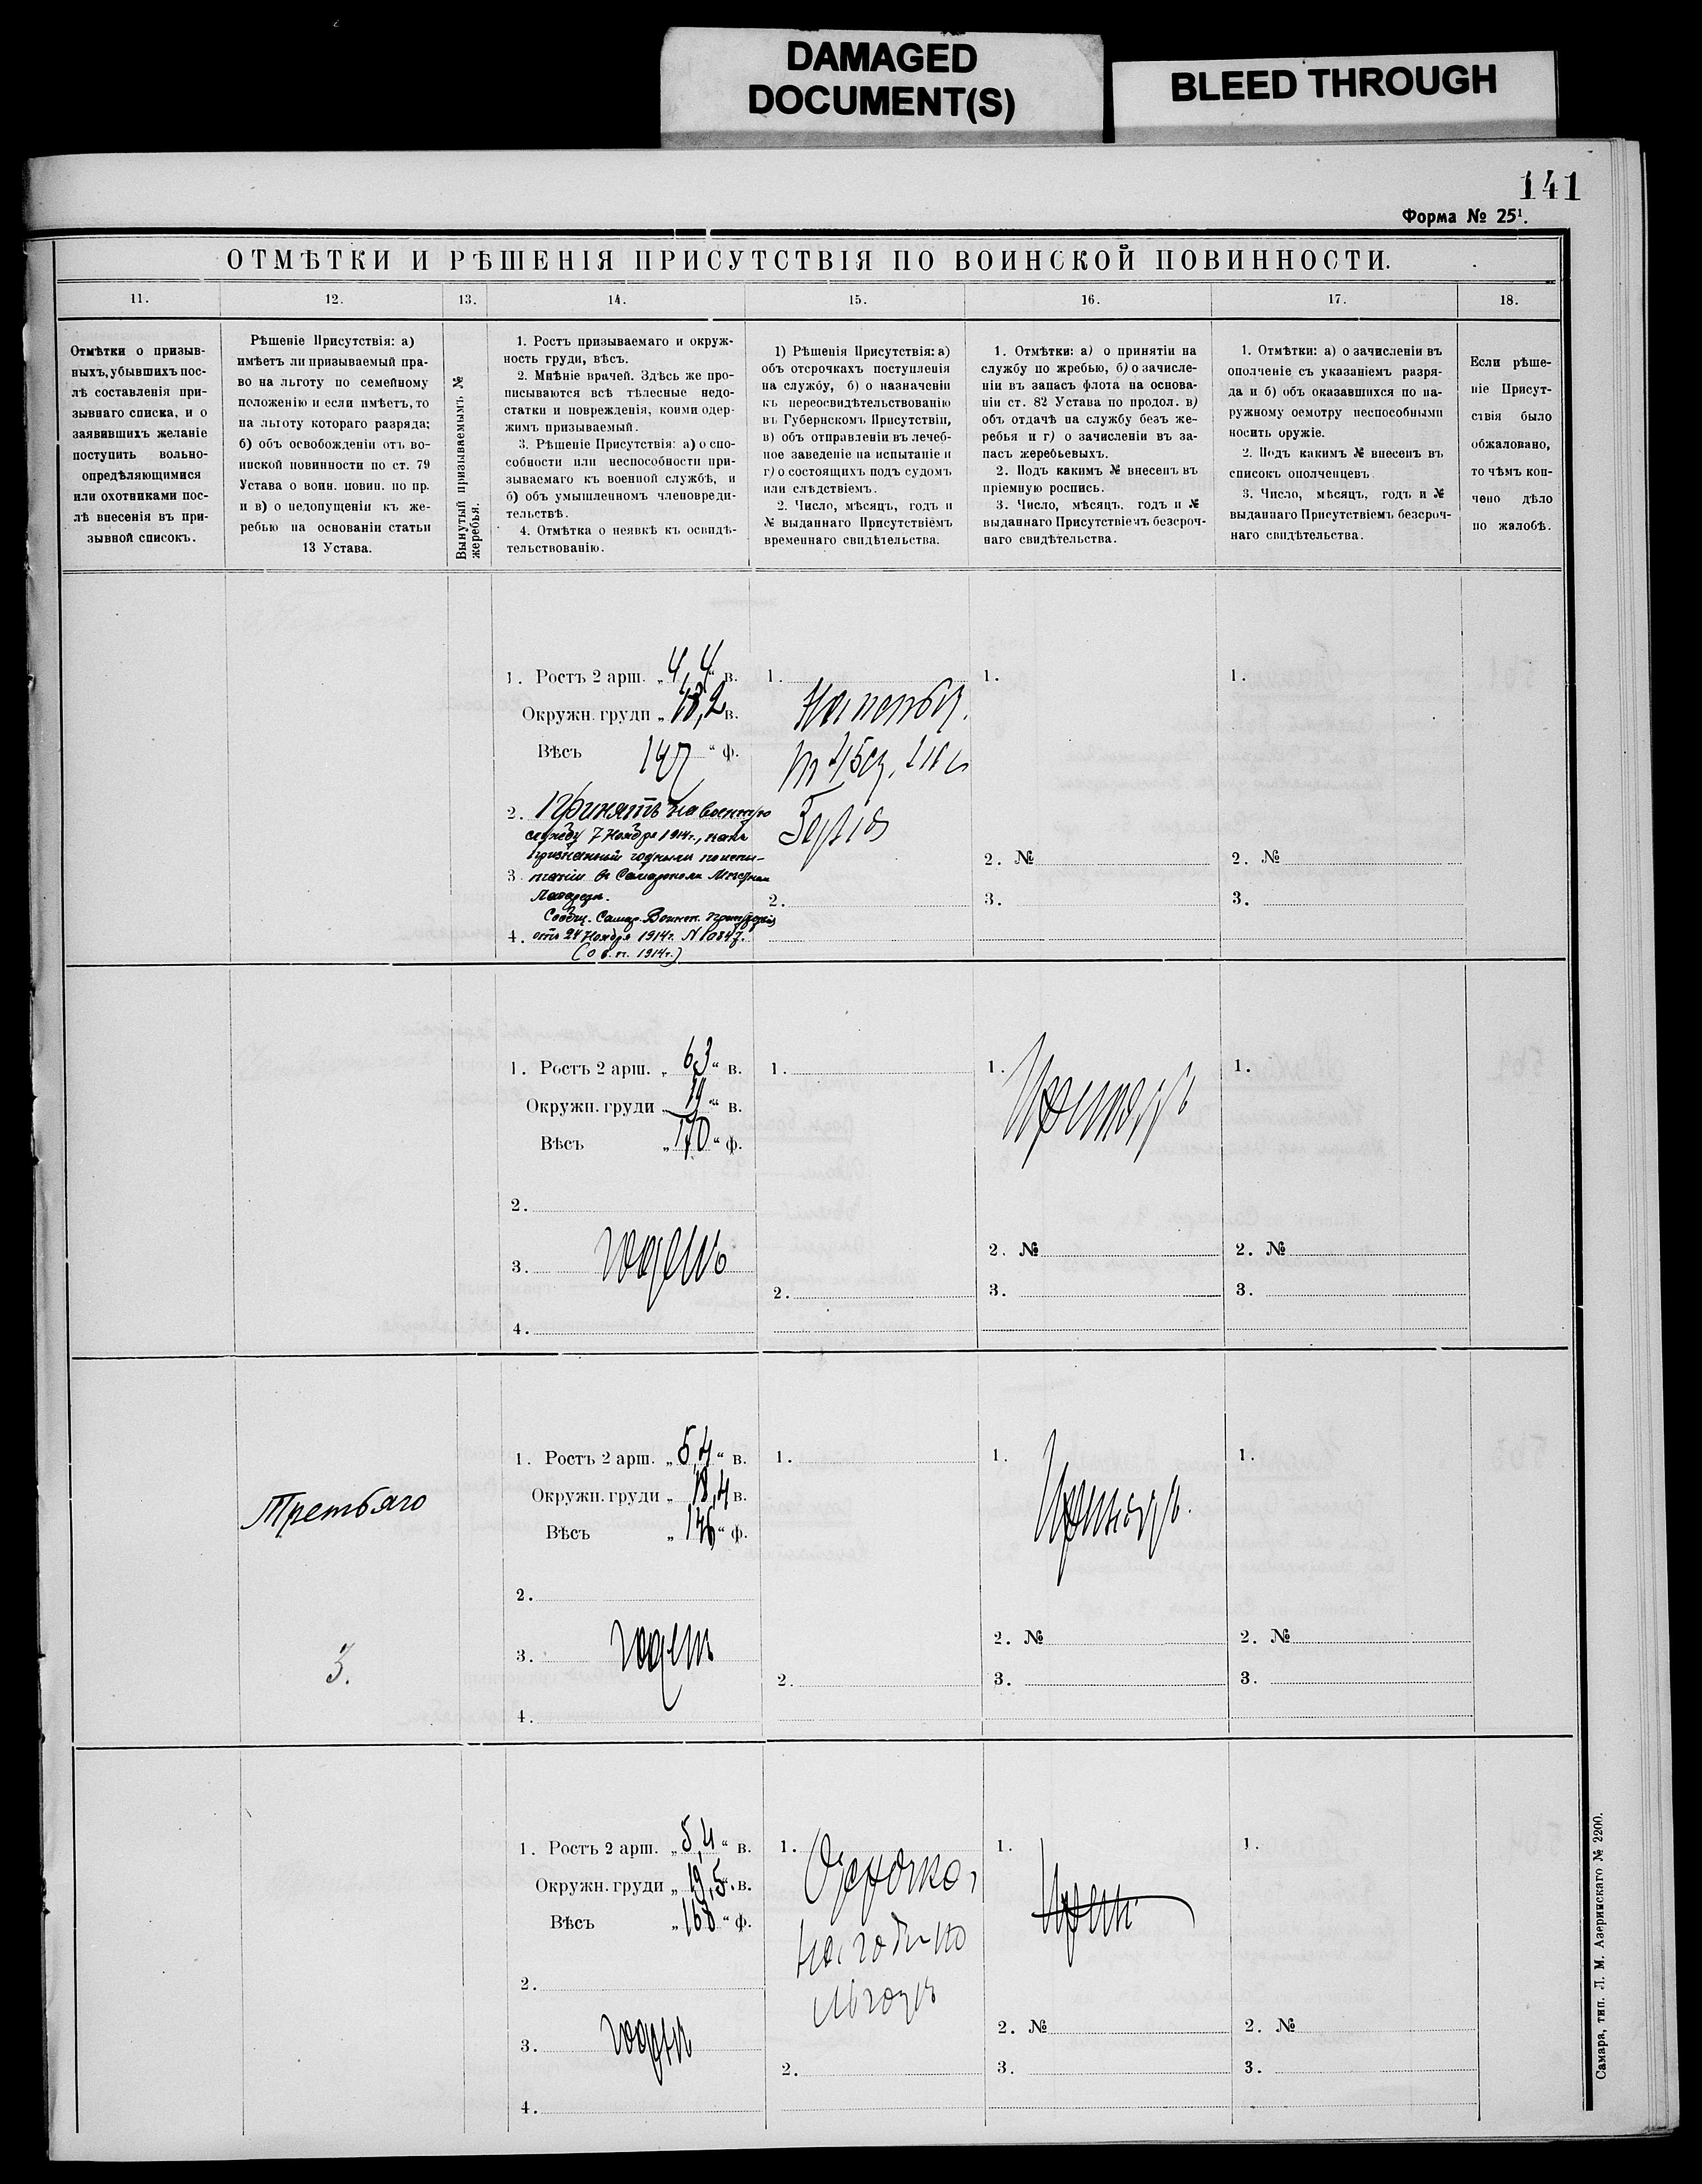 DAMAGED
DOCUMENT(S)
BLEED THROUGH
141
Форма № 25¹.
ОТМѢТКИ И РѢШЕНІЯ ПРИСУТСТВІЯ ПО ВОИНСКОЙ ПОВИННОСТИ.
11.
12.
13.
14.
15.
16.
17.
18.
Отмѣтки о призыв-
ныхъ, убывшихъ пос-
лѣ составленія при-
зывнаго списка, и о
заявившихъ желаніе
поступить вольно-
опредѣляющимися
или охотниками пос-
лѣ внесенія въ при-
зывной списокъ.
Рѣшеніе Присутствія: а)
имѣетъ ли призываемый пра-
во на льготу по семейному
положенію и если имѣетъ, то
на льготу котораго разряда;
б) объ освобожденіи отъ во-
инской повинности по ст. 79
Устава о воин. повин. по пр.
и в) о недопущеніи къ же-
ребью на основаніи статьи
13 Устава.
Вынутый призываемымъ №
жеребья.
1. Ростъ призываемаго и окруж-
ность груди, вѣсъ.
2. Мнѣніе врачей. Здѣсь же про-
писываются всѣ тѣлесные недо-
статки и поврежденія, коими одер-
жимъ призываемый.
3. Рѣшеніе Присутствія: а) о спо-
собности или неспособности при-
зываемаго къ военной службѣ, и
б) объ умышленномъ членовреди-
тельствѣ.
4. Отмѣтка о неявкѣ къ освидѣ-
тельствованію.
1) Рѣшенія Присутствія: а)
объ отсрочкахъ поступленія
на службу, б) о назначеніи
къ переосвидѣтельствованію
въ Губернскомъ Присутствіи,
в) объ отправленіи въ лечеб-
ное заведеніе на испытаніе и
г) о состоящихъ подъ судомъ
или слѣдствіемъ.
2. Число, мѣсяцъ, годъ и
№ выданнаго Присутствіемъ
временнаго свидѣтельства.
1. Отмѣтки: а) о принятіи на
службу по жребью, б) о зачисле-
ніи въ запасъ флота на основа-
ніи ст. 82 Устава по продол. в)
объ отдачѣ на службу безъ же-
ребья и г) о зачисленіи въ за-
пасъ жеребьевыхъ.
2. Подъ какимъ № внесенъ въ
пріемную роспись.
3. Число, мѣсяцъ, годъ и №
выданнаго Присутствіемъ безсроч-
наго свидѣтельства.
1. Отмѣтки: а) о зачисленіи въ
ополченіе съ указаніемъ разря-
да и б) объ оказавшихся по на-
ружному осмотру неспособными
носить оружіе.
2. Подъ какимъ № внесенъ въ
списокъ ополченцевъ.
3. Число, мѣсяцъ, годъ и №
выданнаго Присутствіемъ безсроч-
наго свидѣтельства.
Если рѣше-
ніе Присут-
ствія было
обжаловано,
то чѣмъ кон-
чено дѣло
по жалобѣ.
1. Ростъ 2 арш. „ 4,4 “ в.
Окружн. груди „ 18,2 в.
Вѣсъ 147 “ ф.
2. Принятъ на военную
службу 7 Ноября 1914 г., какъ
признанный годнымъ по испы-
3. таніи въ Самарскомъ Мѣстномъ
Лазаретѣ.
Сообщ. Самар. Воинск. Присутствія
4. отъ 24 Ноября 1914 г. №
1.
2.
1.
2. №
3.
1.
2. №
3.
1. Ростъ 2 арш. „ 6,3 “ в.
Окружн. груди „ 19 “ в.
Вѣсъ „ 170 “ ф.
2.
3. годенъ
4.
1.
2.
1. Принятъ
2. №
3.
1.
2. №
3.
Третьяго
3.
1. Ростъ 2 арш. „ 5,4 “ в.
Окружн. груди „ 18,4 в.
Вѣсъ „ 146 “ ф.
2.
3. годенъ
4.
1.
2.
1. Принятъ
2. №
3.
1.
2. №
3.
1. Ростъ 2 арш. „ 5,4 “ в.
Окружн. груди „ 19,5 “ в.
Вѣсъ „ 168 “ ф.
2.
3. годенъ
4.
1. Отсрочка
2.
1.
2. №
3.
1.
2. №
3.
Самара, тип. Л. М. Азеринскаго № 2200.